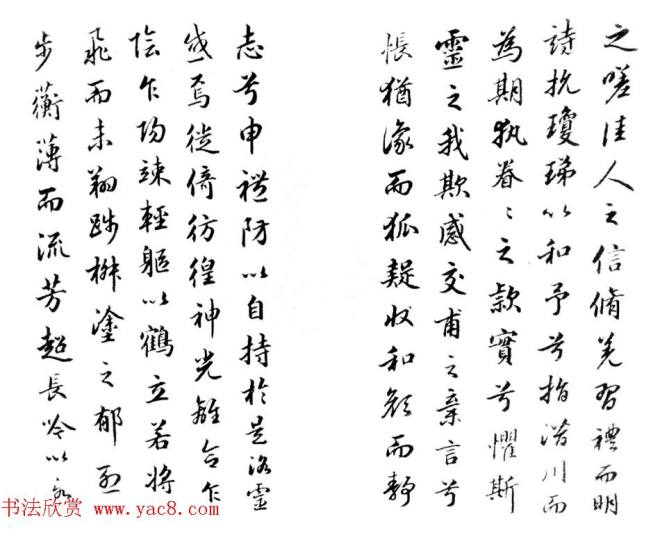 之嗟佳人之信脩羌習禮而明
詩抗瓊珶以和予兮指潛川而
為期執眷〻之款實兮懼斯
靈之我欺感交甫之棄言兮
悵猶豫而狐疑收和顏而靜
志兮申禮防以自持於是洛靈
感焉徙倚彷徨神光離合乍
陰乍陽竦輕軀以鶴立若將
飛而未翔踐椒塗之郁烈
步蘅薄而流芳超長吟以永
书法欣赏 www.yac8.com